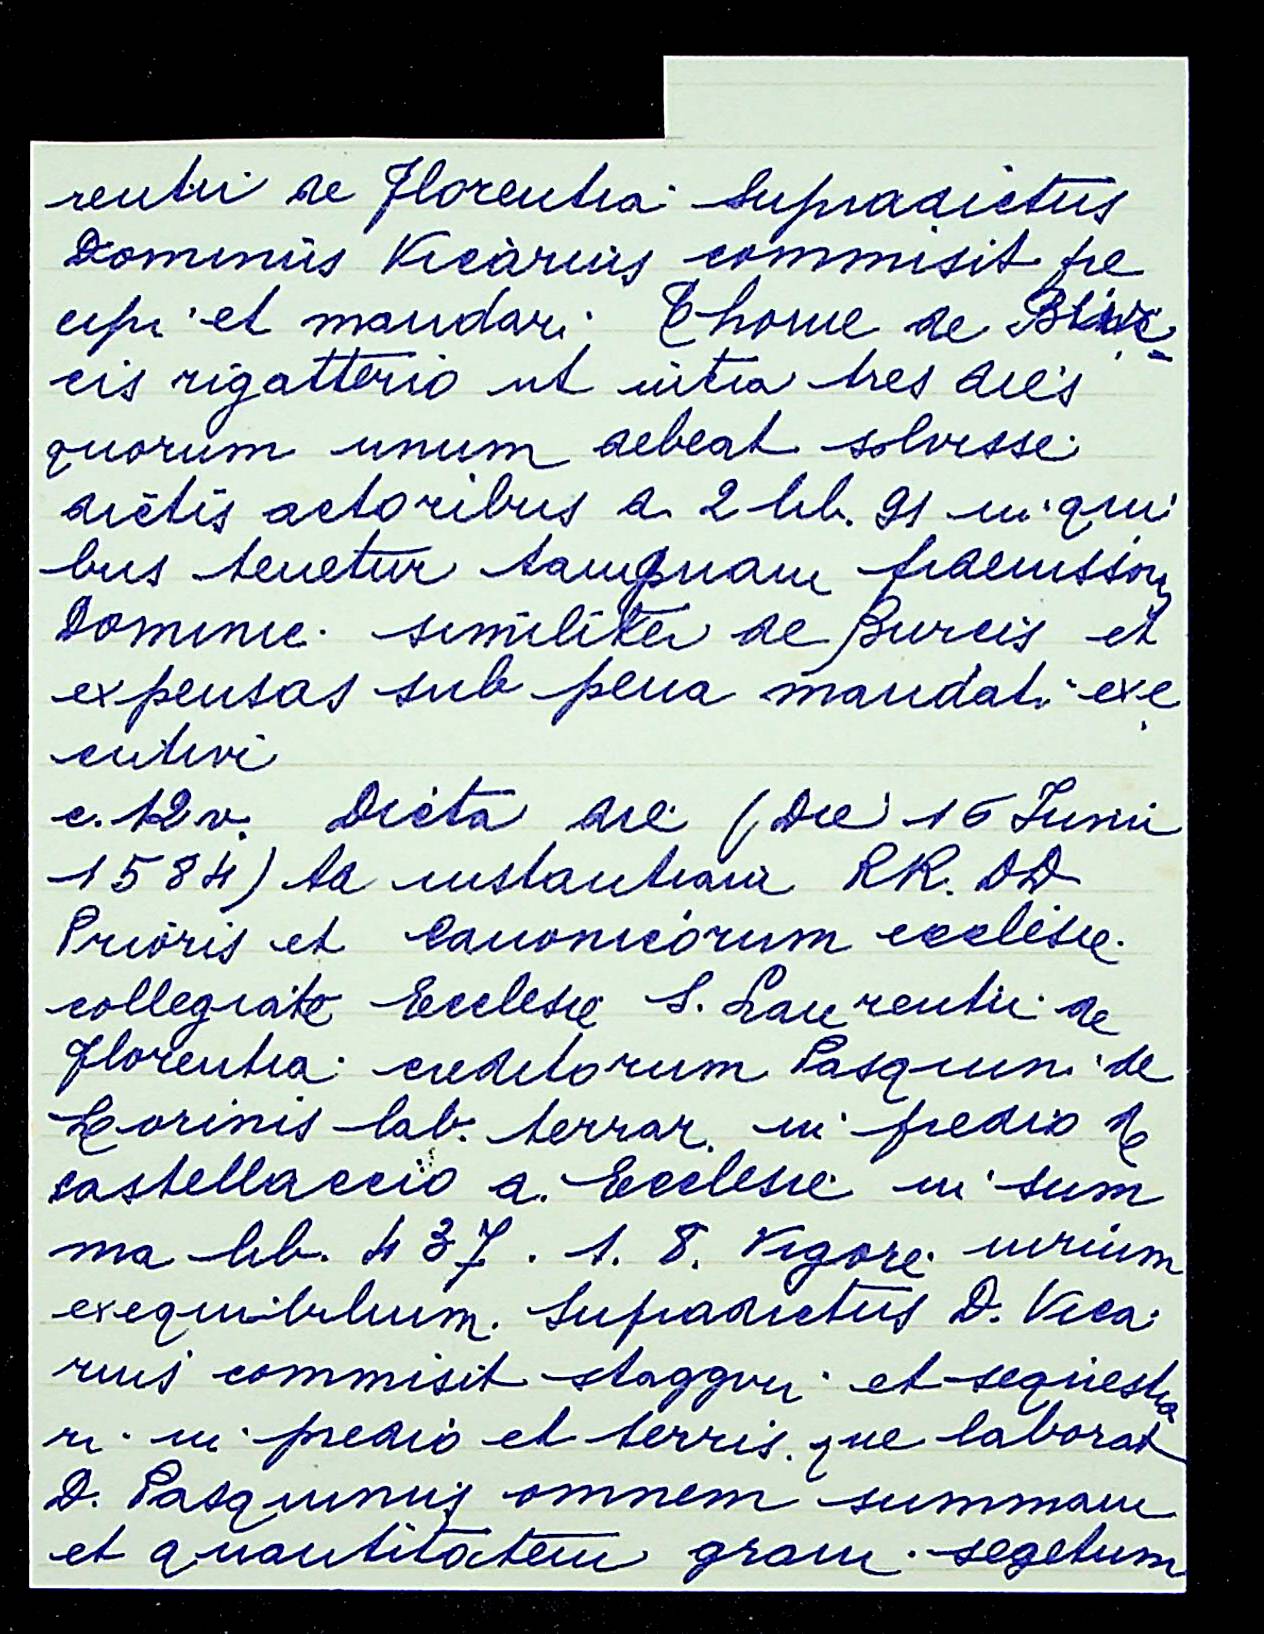 rentii de Florentia Supradictus
Dominus Vicarius commisit pre
cipi et mandari Thome de Bur
cis rigatterio ut intra tres dies
quorum unum debeat solvisse
dictis actoribus d. 2 lib. 91 in qui
bus tenetur tamquam fideiussor
Dominici similiter de Burcis et
expensas sub pena mandati exe
cutivi
c. 12 v. Dicta die (Die 16 Junii
1584) Ad instantiam RR. DD
Prioris et Canonicorum ecclesie
collegiate Ecclesie S. Laurentii de
Florentia creditorum Pasquini de
Lorinis lab. terrar. in predio de
castellaccio d. Ecclesie in sum
ma lib. 437. 1. 8. Vigore iurium
exequibilium. Supradictus D. Vica
rius commisit staggiri et sequestra
ri in predio et terris que laborat
D. Pasquinus omnem summam
et quantitatem grani segetum